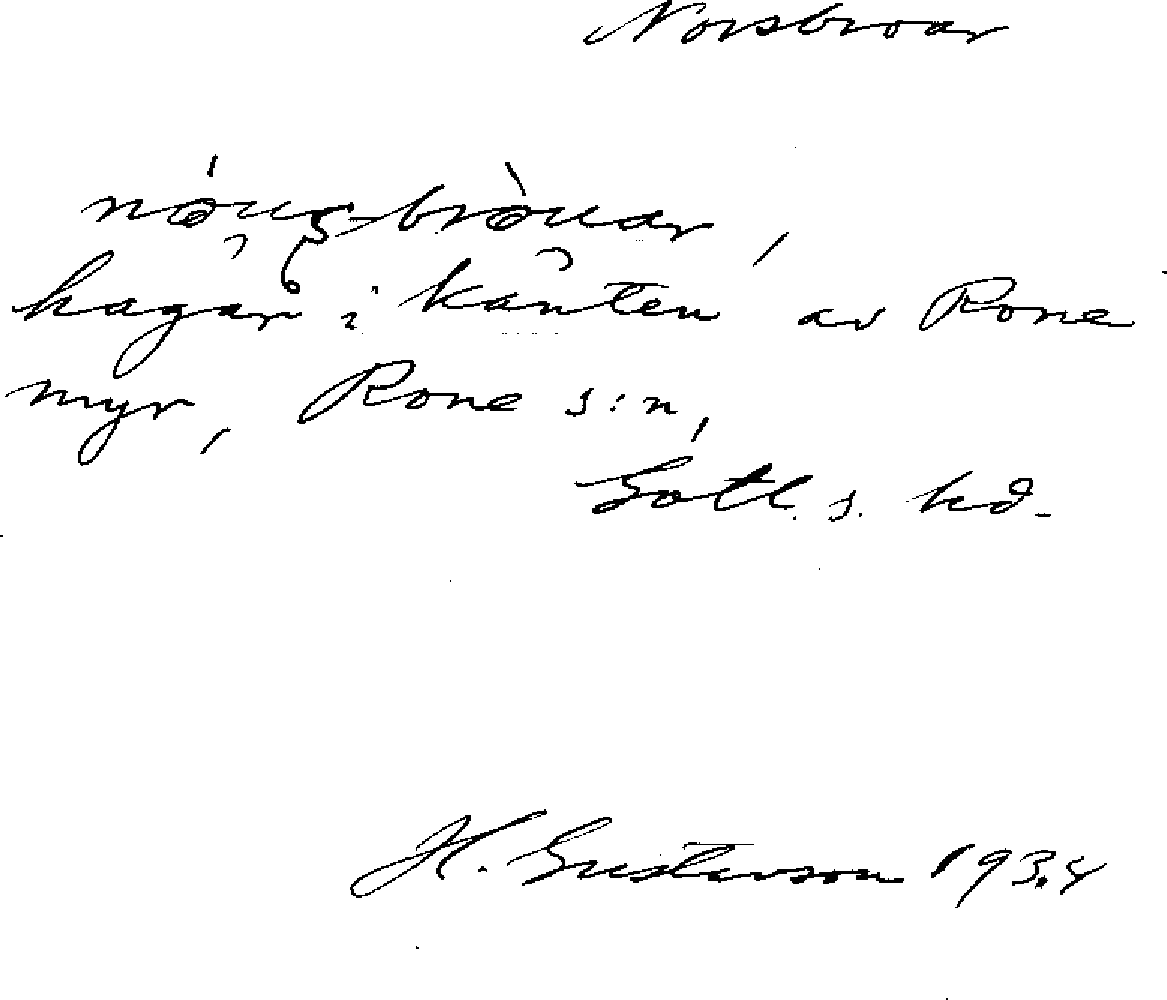 Norsbroar
hagar i kanten av Rone
myr, Rone s:n,
Gotl. s. hd.
H. Gustavson 1934